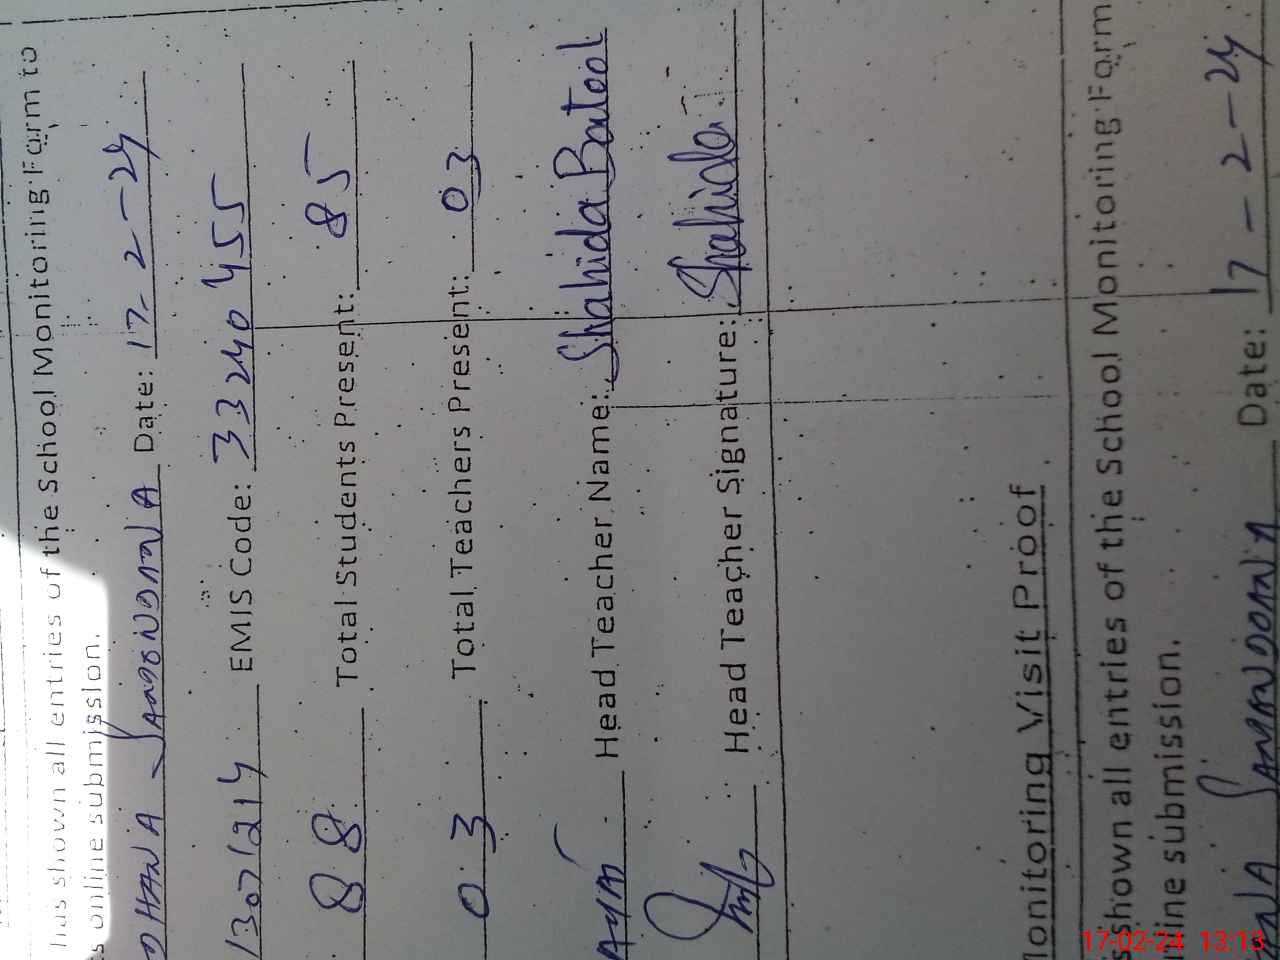 has shown all entries of the School Monitoring Form to
s online submission.
Date: 17-2-24
13071214 EMIS Code: 33240455
88 Total Students Present: 85
03 Total Teachers Present: 03
Head Teacher Name: Shahida Batool
Head Teacher Signature: Shahida
Monitoring Visit Proof
s shown all entries of the School Monitoring Form
line submission.
Date: 17-2-24
17-02-24 13:13